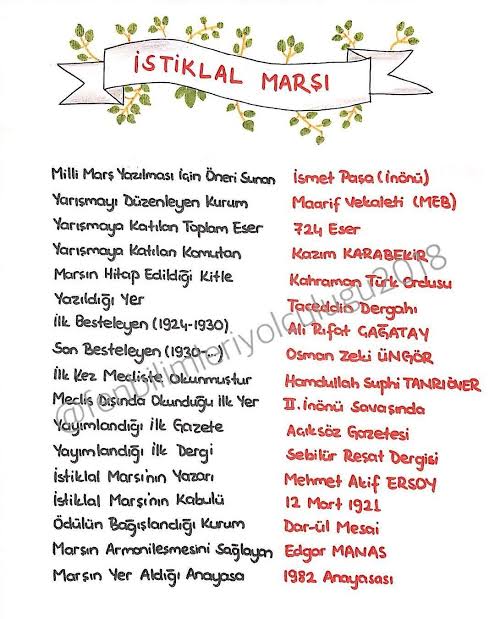 İSTİKLAL MARŞI
Milli Marş Yazılması İçin Öneri Sunan İsmet Paşa (İnönü)
Yarışmayı Düzenleyen Kurum Maarif Vekaleti (MEB)
Yarışmaya Katılan Toplam Eser 724 Eser
Yarışmaya Katılan Komutan Kazım KARABEKİR
Marşın Hitap Edildiği Kitle Kahraman Türk Ordusu
Yazıldığı Yer Taceddin Dergahı
İlk Besteleyen (1924-1930) Ali Rıfat ÇAĞATAY
Son Besteleyen (1930-...) Osman Zeki ÜNGÖR
İlk Kez Mecliste Okunmuştur Hamdullah Suphi TANRIÖVER
Meclis Dışında Okunduğu İlk Yer II. İnönü Savaşında
Yayımlandığı İlk Gazete Açıksöz Gazetesi
Yayımlandığı İlk Dergi Sebilür Reşat Dergisi
İstiklal Marşı'nın Yazarı Mehmet Akif ERSOY
İstiklal Marşı'nın Kabulü 12 Mart 1921
Ödülün Bağışlandığı Kurum Dar-ül Mesai
Marşın Armonileşmesini Sağlayan Edgar MANAS
Marşın Yer Aldığı Anayasa 1982 Anayasası